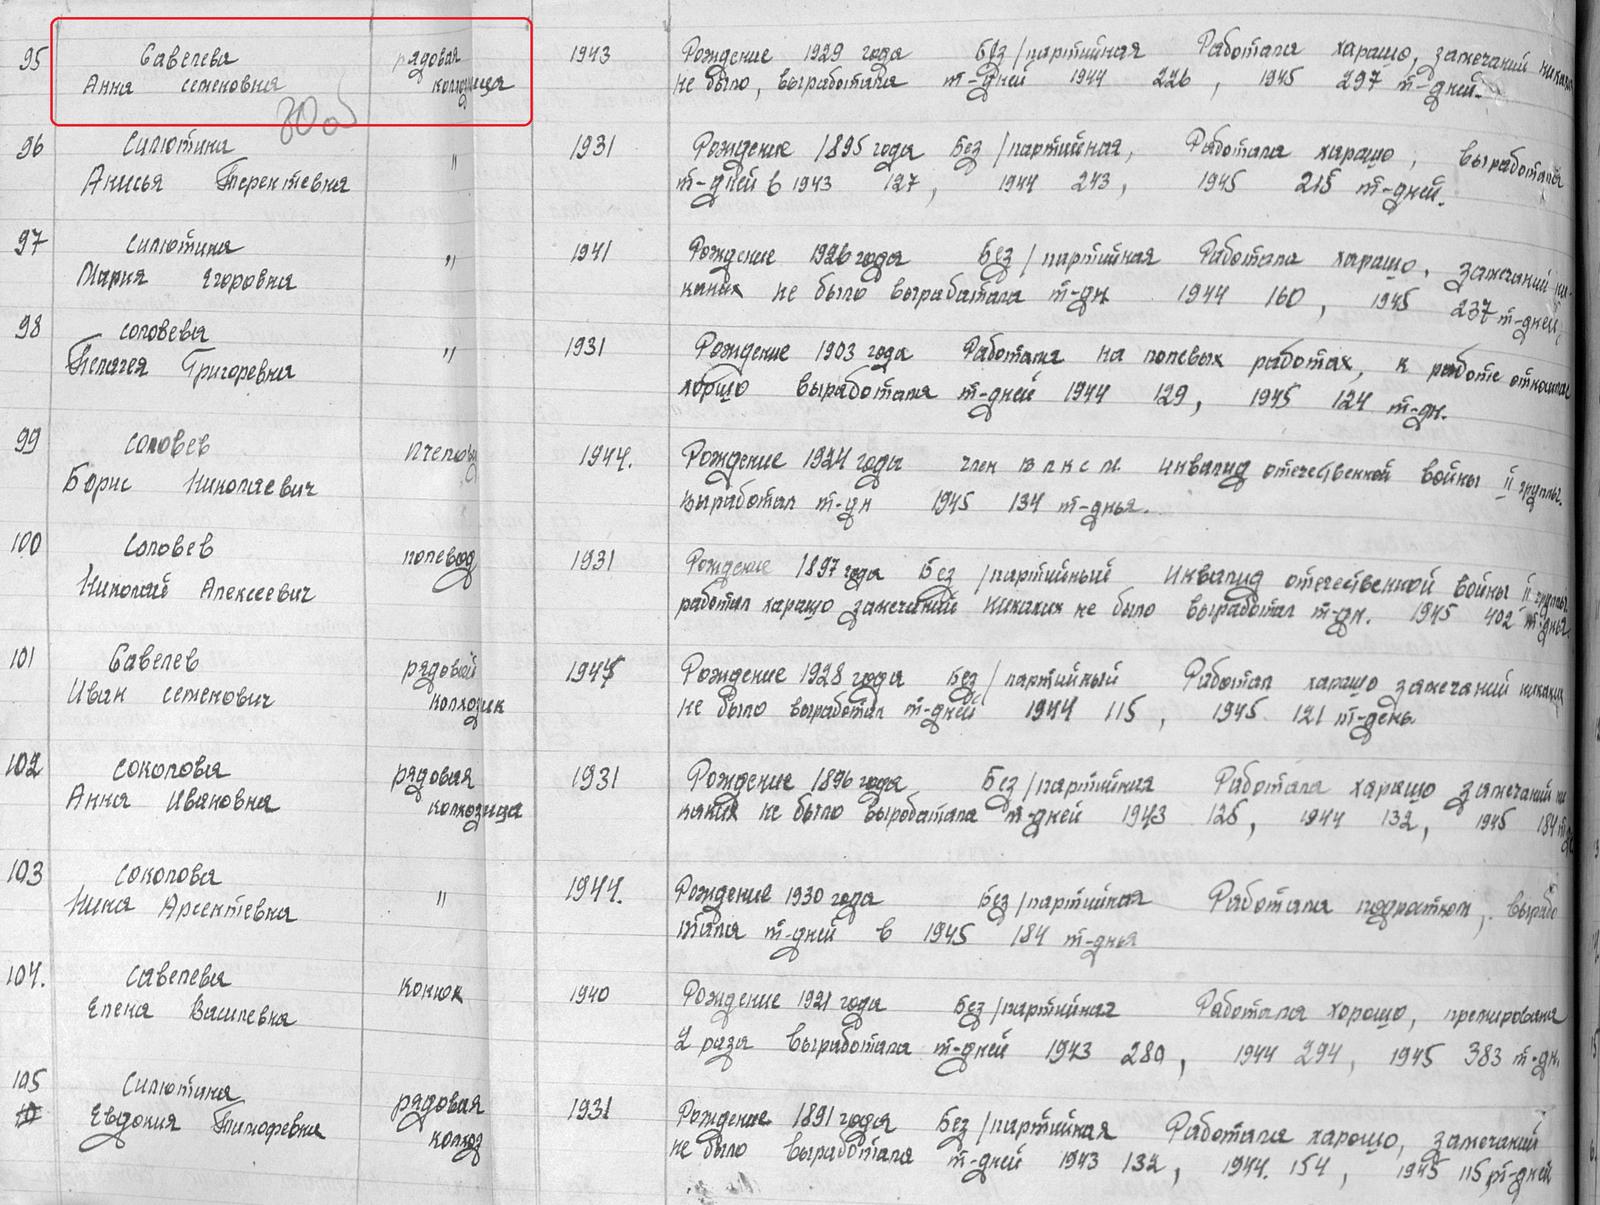 95 Савелева рядовая 1943 Рождение 1929 года Без/партийная Работала харашо, замечаний никаких
Анна семеновна колхозница не было, выработала т-дней 1944 226, 1945 297 т-дней.
96 Силютина " 1931 Рождение 1895 года Без/партийная, Работала харашо, выработала
Анисья Терентевна т-дней в 1943 127, 1944 243, 1945 215 т-дней.
97 Силютина " 1941 Рождение 1926 года Без/партийная Работала харашо, замечаний ни-
Мария Егоровна каких не было вырабатала т-дн 1944 160, 1945 237 т-дней,
98 соловева " 1931 Рождение 1903 года Работала на полевых работах, к работе относилас
Пелагея Григоревна хорошо выработала т-дней 1944 129, 1945 124 т-дн.
99 Соловев Пчеловод 1944. Рождение 1924 года член влксм инвалид отечественной войны II группы.
Борис Николаевич выработал т-дн 1945 134 т-дня.
100 Соловев полевод 1931 Рождение 1897 года Без/партийный Инвалид отечественной войны II группы.
Николай Алексеевич работал харашо замечаний никаких не было выработал т-дн. 1945 402 т-дня.
101 Савелев рядовой 1944 Рождение 1928 года Без/партийный Работал харашо замечаний никаких
Иван семенович колхозник не было выработал т-дней 1944 115, 1945 121 т-день.
102 соколова рядовая 1931 Рождение 1896 года Без/партийния Работала харашо замечаний ни
Анна Ивановна колхозница каких не было выробатала т-дней 1943 125, 1944 132, 1945 184 т-дн
103 соколова " 1944. Рождение 1930 года Без/партийная Работала подростком, вырабо
Нина Арсентевна тала т-дней в 1945 184 т-дня
104. савелева конюх 1940 Рождение 1921 года Без/партийная Работала хорошо, премирована
Елена Василевна 2 раза выработала т-дней 1943 280, 1944 294, 1945 383 т-дн.
105 Силютина рядовая 1931 Рождение 1891 года Без/партийная Работала харошо, замечаний
Евдокия Тимофевна колхоз не было выработала т-дней 1943 132, 1944. 154, 1945 115 т-дней